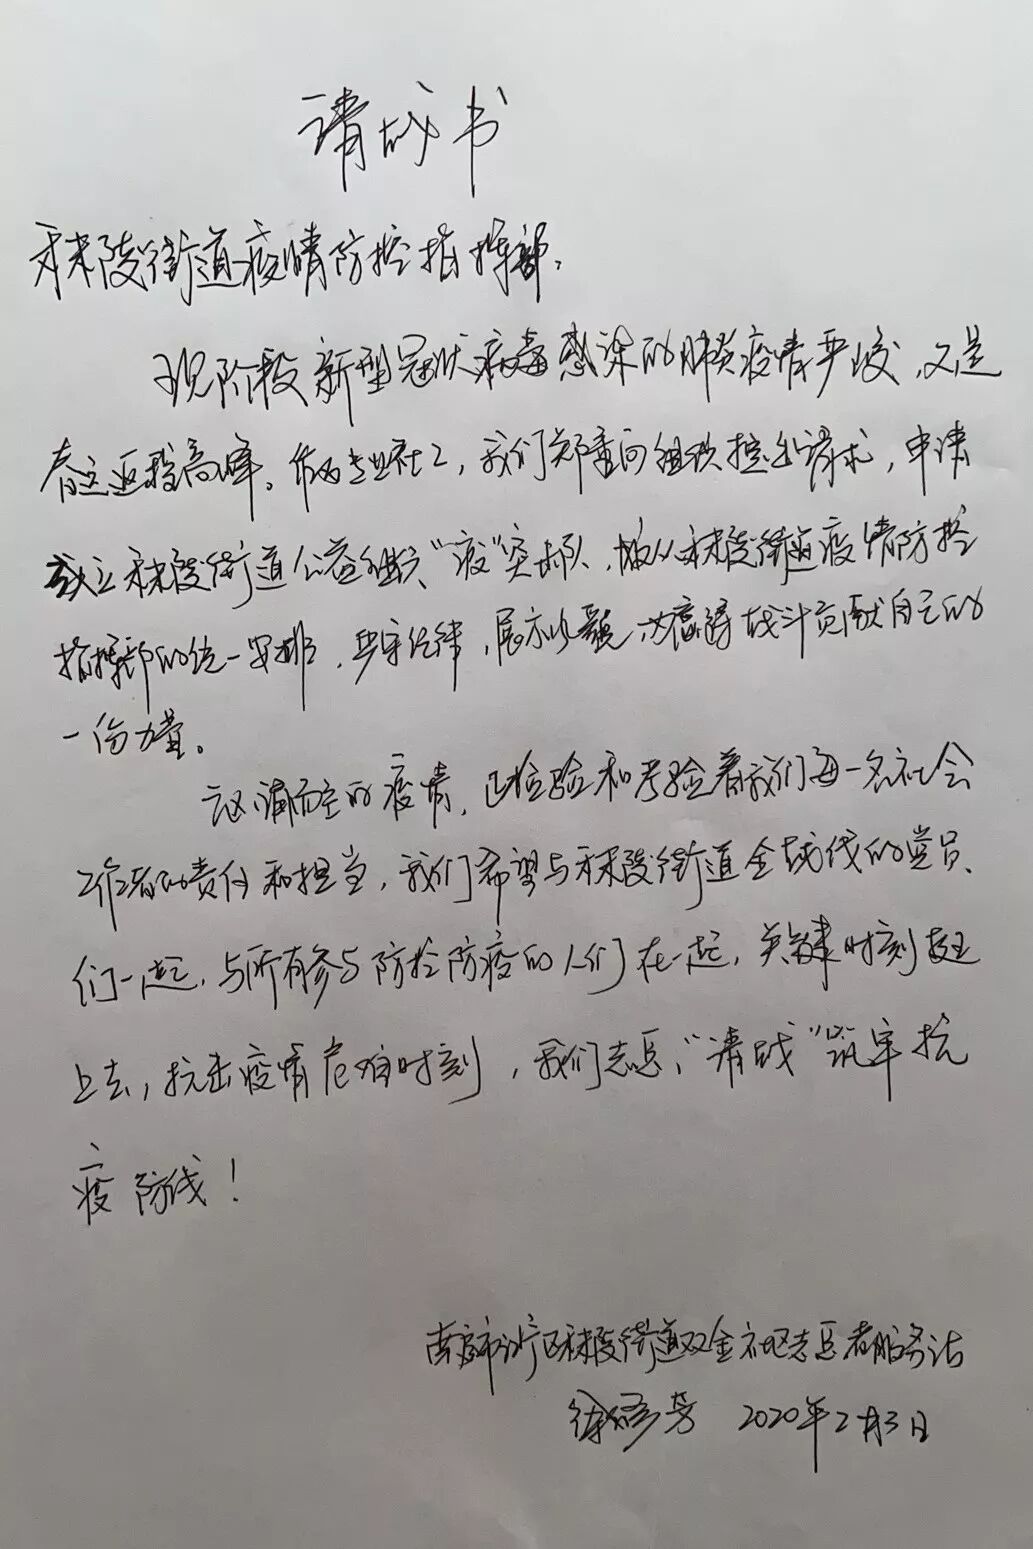 请战书
秣陵街道疫情防控指挥部：
现阶段新型冠状病毒感染的肺炎疫情严峻，又是
春运返程高峰。作为专业社工，我们郑重向组织提出请求，申请
成立秣陵街道公益组织“疫”突击队，服从秣陵街道疫情防控
指挥部的统一安排，严守纪律，展示风貌，为赢得战斗贡献自己的
一份力量。
这次满而至的疫情，正检验和考验着我们每一名社会
工作者的责任和担当，我们希望与秣陵街道全战线的党员
们一起，与所有参与防控防疫的人们在一起，关键时刻顶
上去，抗击疫情危难时刻，我们志愿“请战”筑牢抗
疫防线！
南京市江宁区秣陵街道双金社区志愿者服务站
徐修芳 2020年2月3日